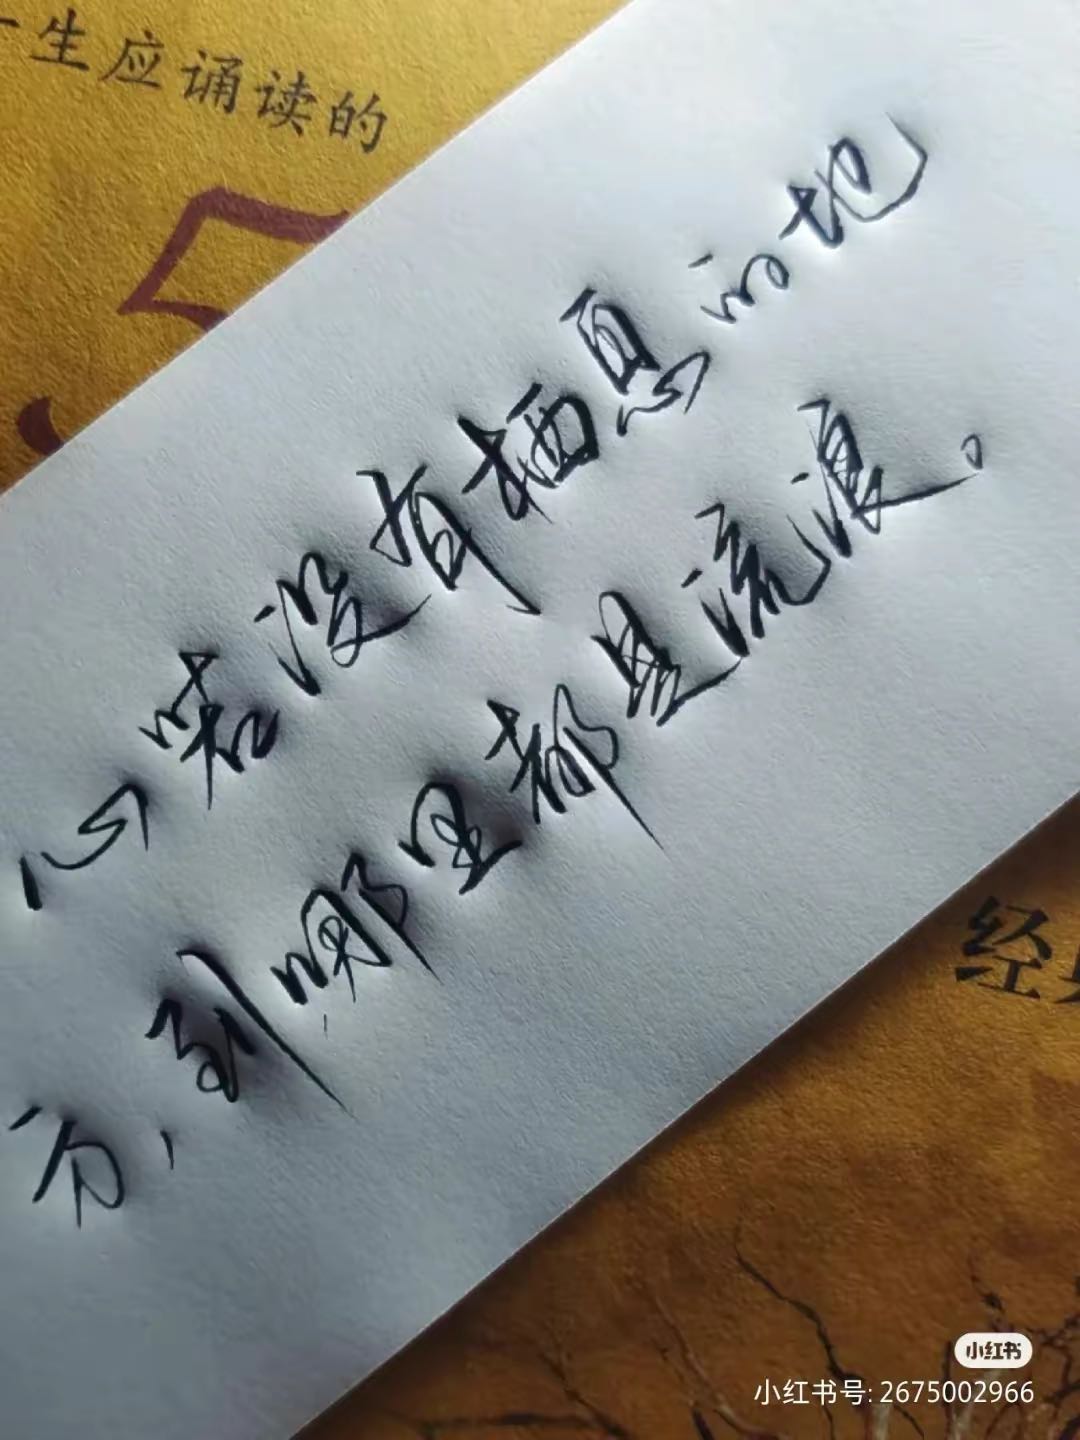 生应诵读的
心若没有栖息的地
方,到哪里都是流浪。
经
小红书
小红书号: 2675002966